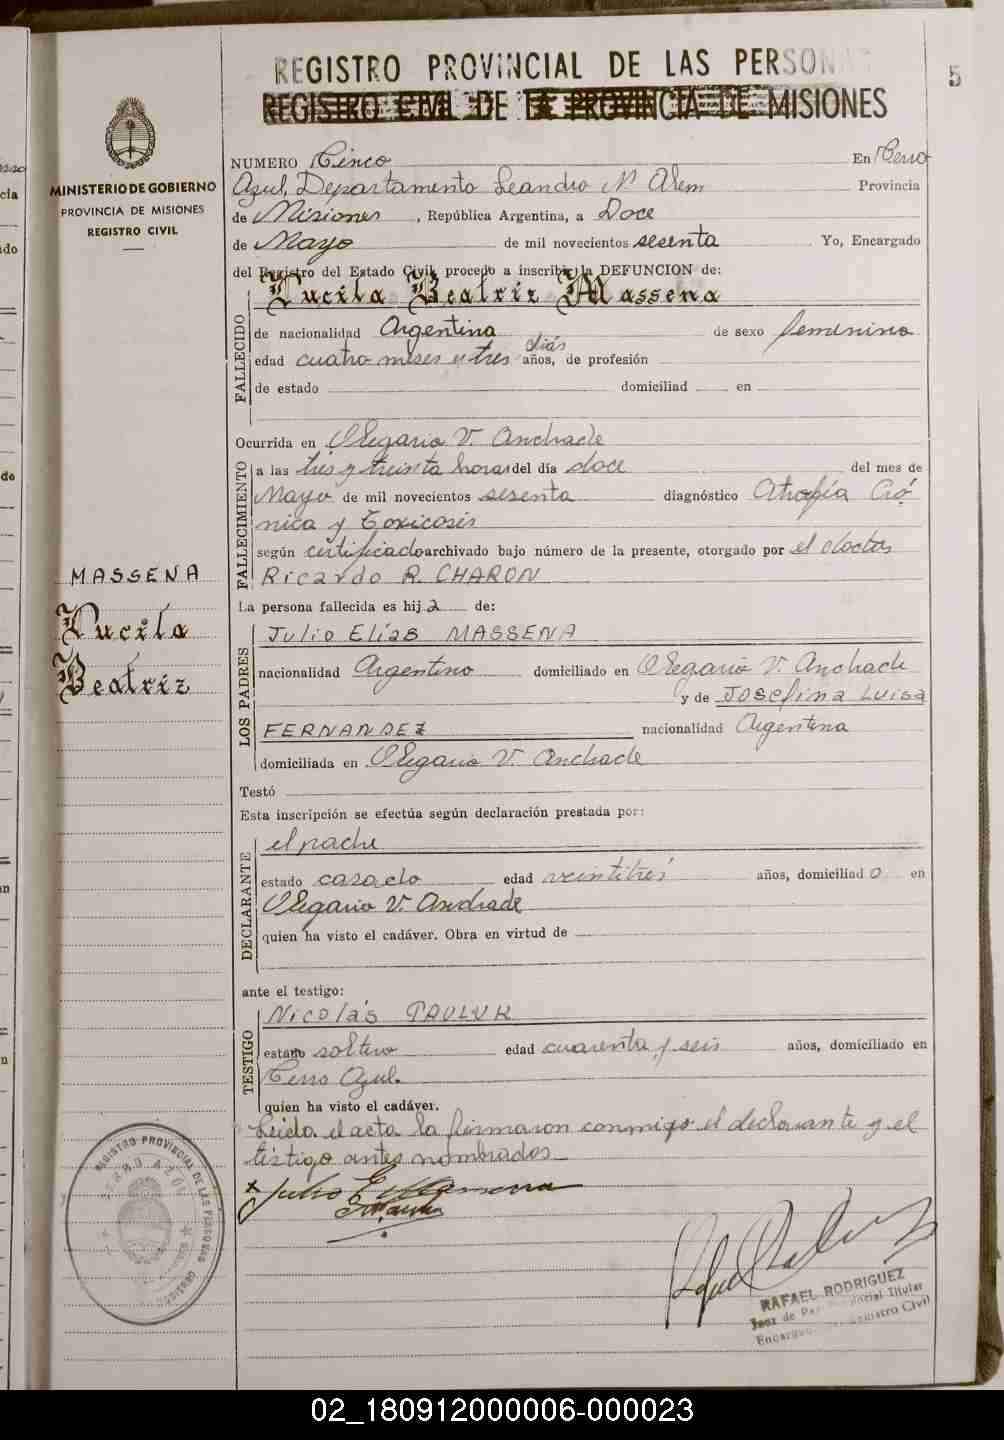 REGISTRO PROVINCIAL DE LAS PERSONAS
REGISTRO CIVIL DE LA PROVINCIA DE MISIONES
5
MINISTERIO DE GOBIERNO
PROVINCIA DE MISIONES
REGISTRO CIVIL
NUMERO Cinco En Cerro
Azul, Departamento Leandro N. Alem Provincia
de Misiones, República Argentina, a Doce
de Mayo de mil novecientos sesenta Yo, Encargado
del Registro del Estado Civil, procedo a inscribir la DEFUNCION de:
FALLECIDO
Lucila Beatriz Massena
de nacionalidad Argentina de sexo femenino
edad cuatro meses y tres días años, de profesión
de estado domiciliad en
Ocurrida en Olegario V. Andrade
FALLECIMIENTO
a las tres y treinta horas del día doce del mes de
Mayo de mil novecientos sesenta diagnóstico Atrofía Cró-
nica y Toxicosis
según certificado archivado bajo número de la presente, otorgado por el doctor
Ricardo R. CHARON
MASSENA
Lucila
Beatriz
La persona fallecida es hija de:
LOS PADRES
Julio Elías MASSENA
nacionalidad Argentino domiciliado en Olegario V. Andrade
y de Josefina Luisa
FERNANDEZ nacionalidad Argentina
domiciliada en Olegario V. Andrade
Testó
Esta inscripción se efectúa según declaración prestada por:
DECLARANTE
el padre
estado casado edad veintitrés años, domiciliado en
Olegario V. Andrade
quien ha visto el cadáver. Obra en virtud de
ante el testigo:
TESTIGO
Nicolás PAULUK
estado soltero edad cuarenta y seis años, domiciliado en
Cerro Azul.
quien ha visto el cadáver.
Leida el acta la firmaron conmigo el declarante y el
testigo antes nombrados
Julio E Massena
REGISTRO PROVINCIAL DE LAS PERSONAS
CERRO AZUL
MISIONES
RAFAEL RODRIGUEZ
Juez de Paz Provincial Titular
Encargado del Registro Civil
02_180912000006-000023